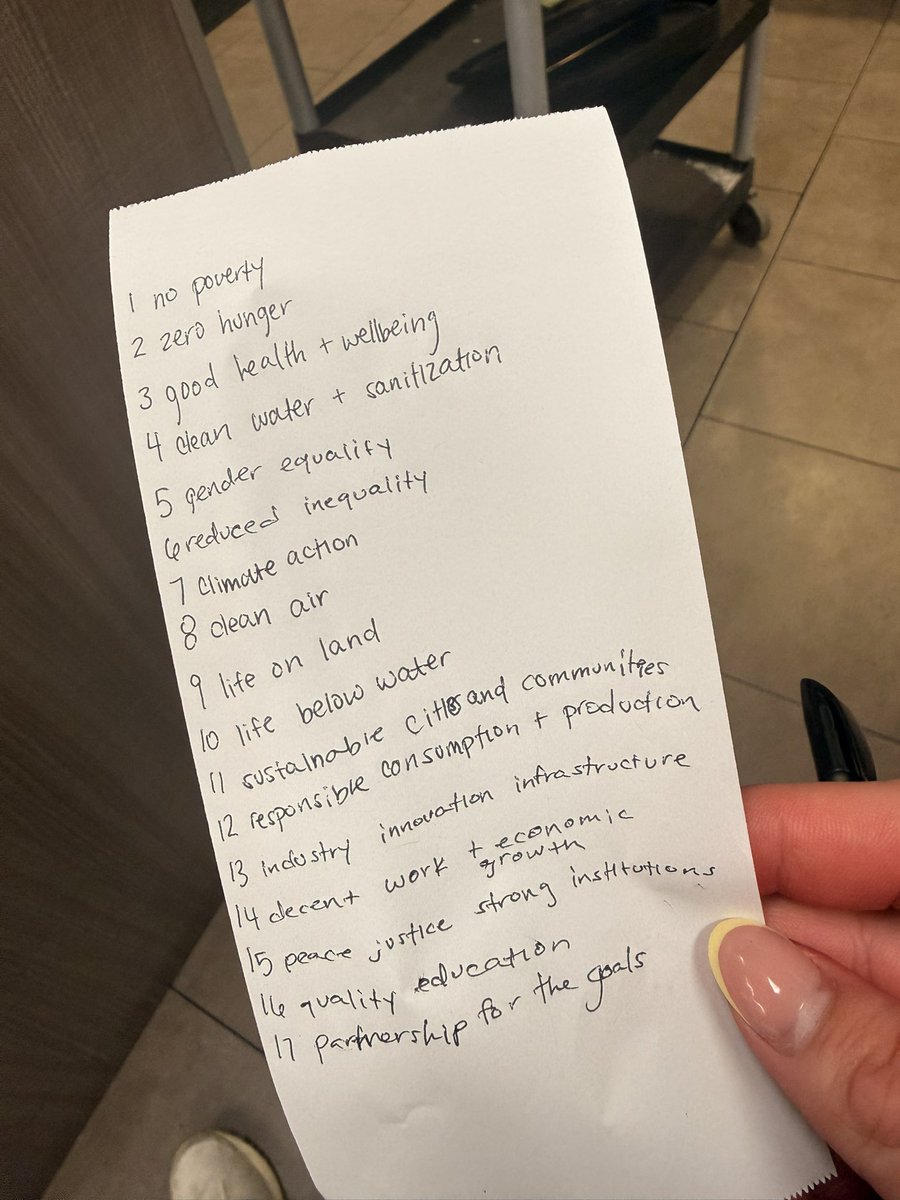 1 no poverty
2 zero hunger
3 good health + wellbeing
4 clean water + sanitization
5 gender equality
6 reduced inequality
7 climate action
8 clean air
9 life on land
10 life below water
11 sustainable cities and communities
12 responsible consumption + production
13 industry innovation infrastructure
14 decent work + economic
growth
15 peace justice strong institutions
16 quality education
17 partnership for the goals